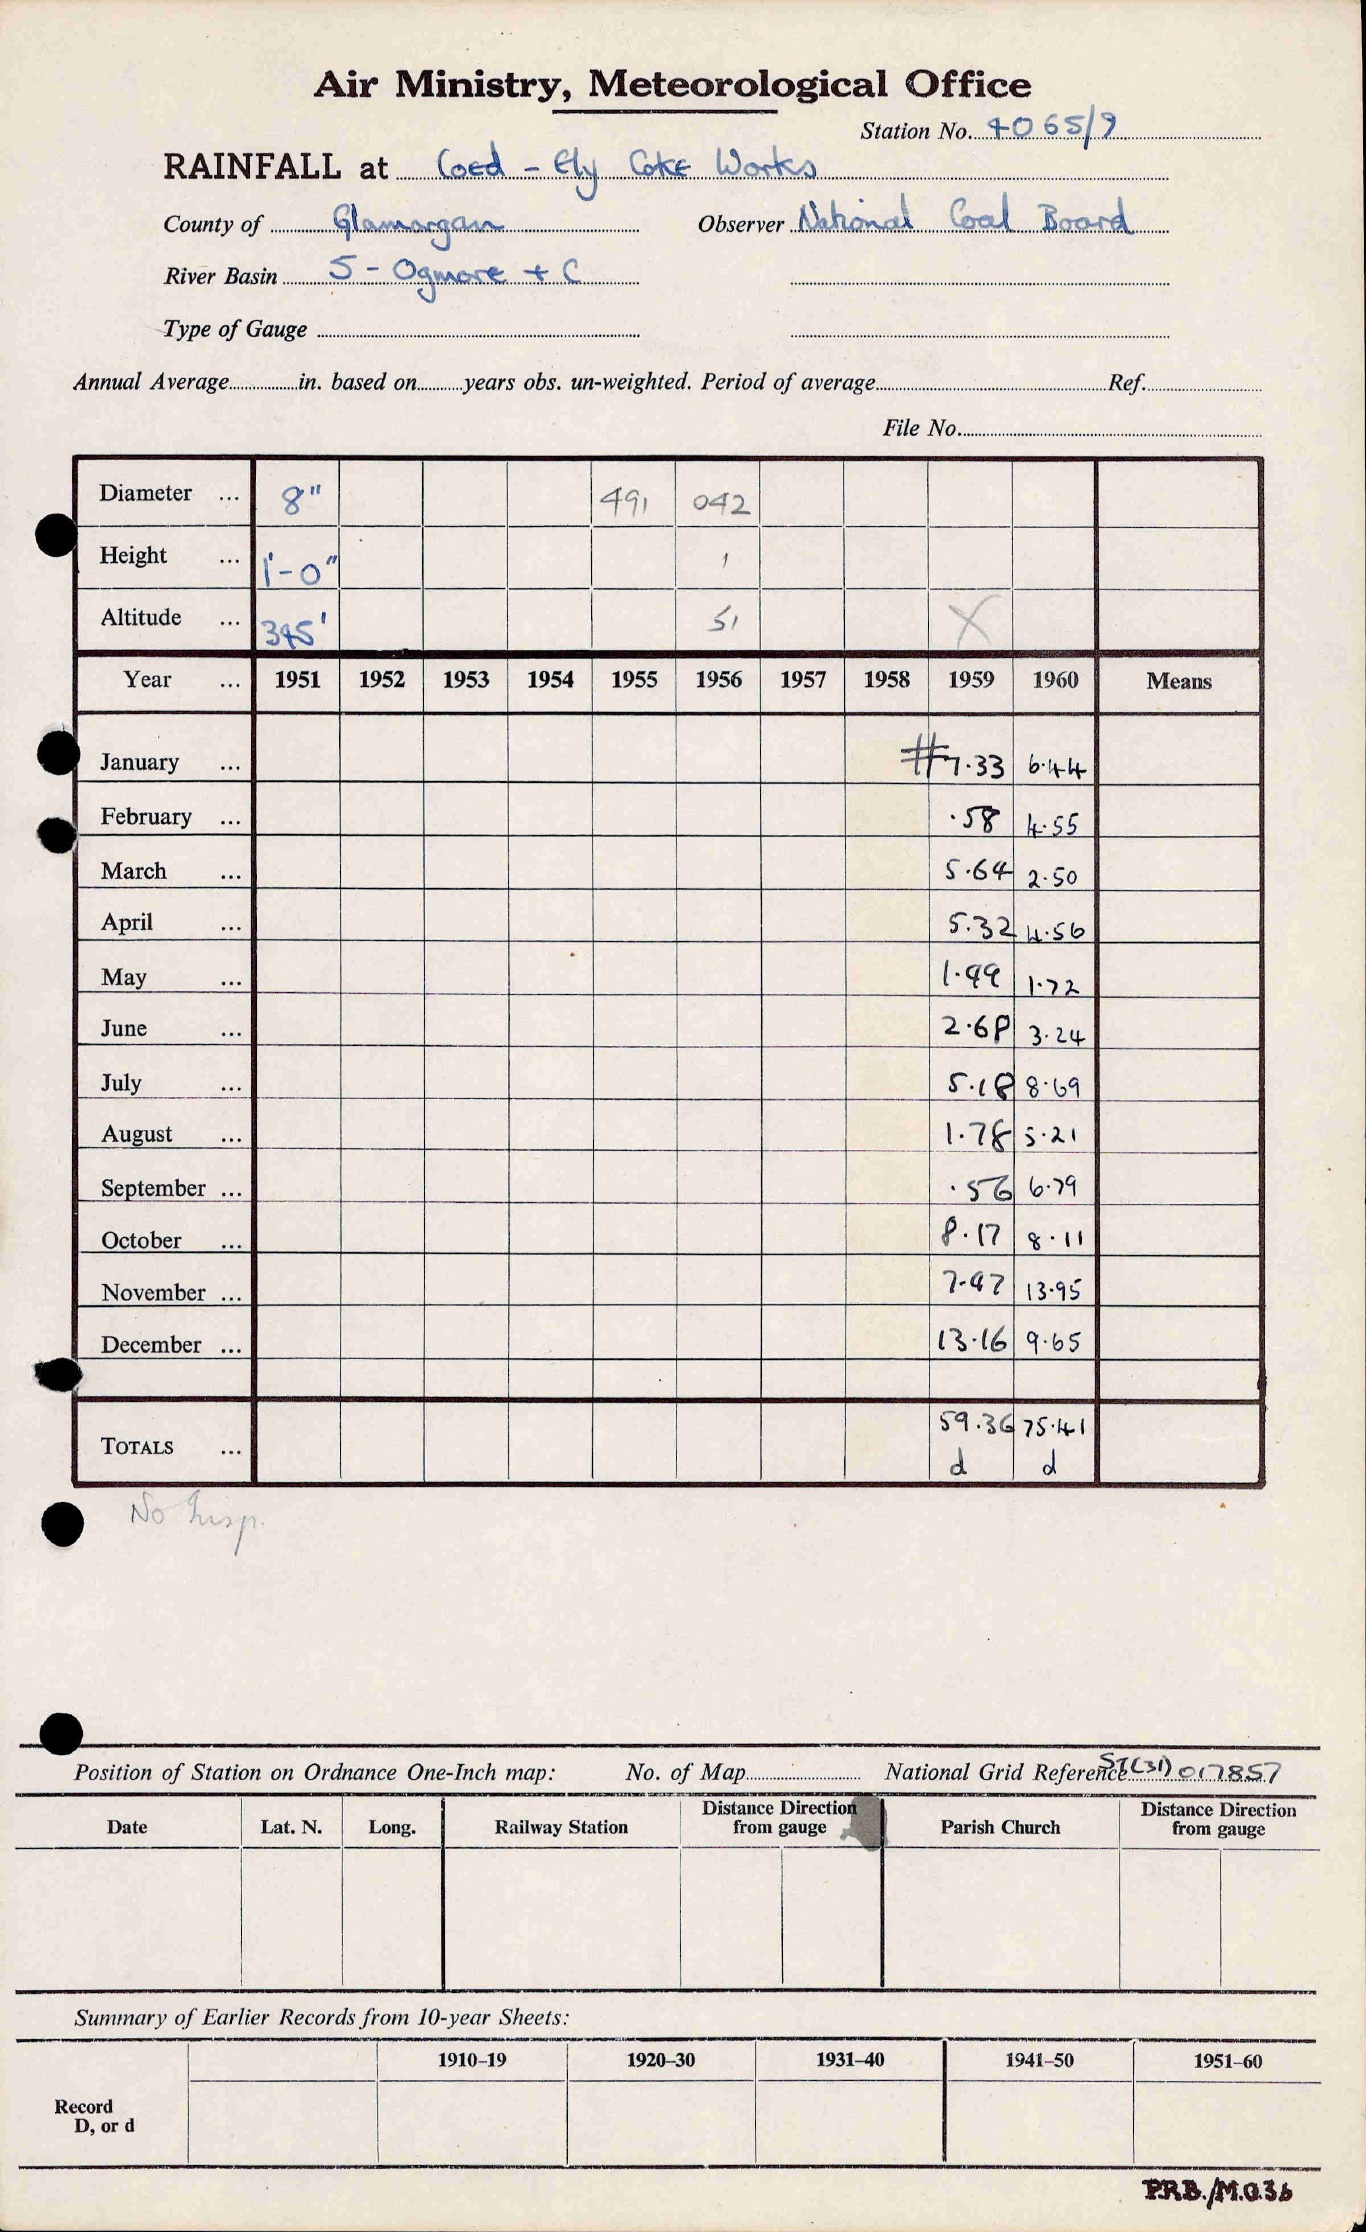 Air Ministry, Meteorological Office
Station No. 4065/9
RAINFALL at Coed - Ely Coke Works
County of Glamorgan Observer National Coal Board
River Basin 5 - Ogmore + C
Type of Gauge
Annual Average in. based on years obs. un-weighted. Period of average Ref.
File No.
Diameter ... 8" 491 042
Height ... 1'-0" 1
Altitude ... 345' 51 X
Year ... 1951 1952 1953 1954 1955 1956 1957 1958 1959 1960 Means
January ... # 7.33 6.44
February ... .58 4.55
March ... 5.64 2.50
April ... 5.32 4.56
May ... 1.49 1.72
June ... 2.68 3.24
July ... 5.18 8.69
August ... 1.78 5.21
September ... .56 6.79
October ... 8.17 8.11
November ... 7.47 13.95
December ... 13.16 9.65
TOTALS ... 59.36 75.41
d d
No Insp.
Position of Station on Ordnance One-Inch map: No. of Map National Grid Reference ST(31) 017857
Date Lat. N. Long. Railway Station Distance Direction from gauge Parish Church Distance Direction from gauge
Summary of Earlier Records from 10-year Sheets:
1910–19 1920–30 1931–40 1941–50 1951–60
Record
D, or d
P.R.B./M.O.36